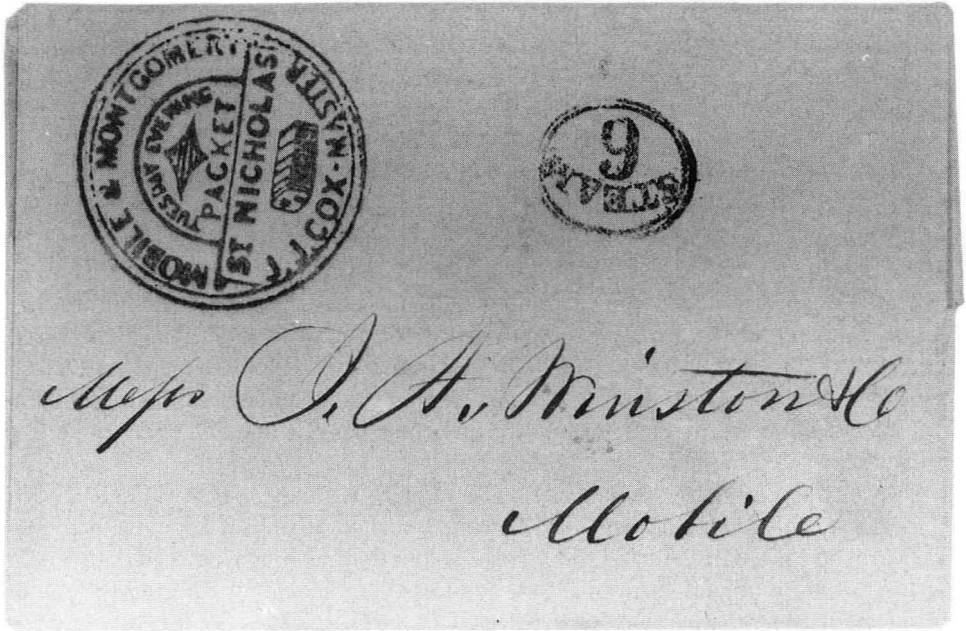 MOBILE & MONTGOMERY
TUESDAY EVENING
PACKET
ST NICHOLAS
T T COX-MASTER
9
STEAM
Mess J. A. Winston & Co
Mobile